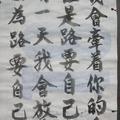 我會牽着你的
是路要自己
一天我會放
為路要自己